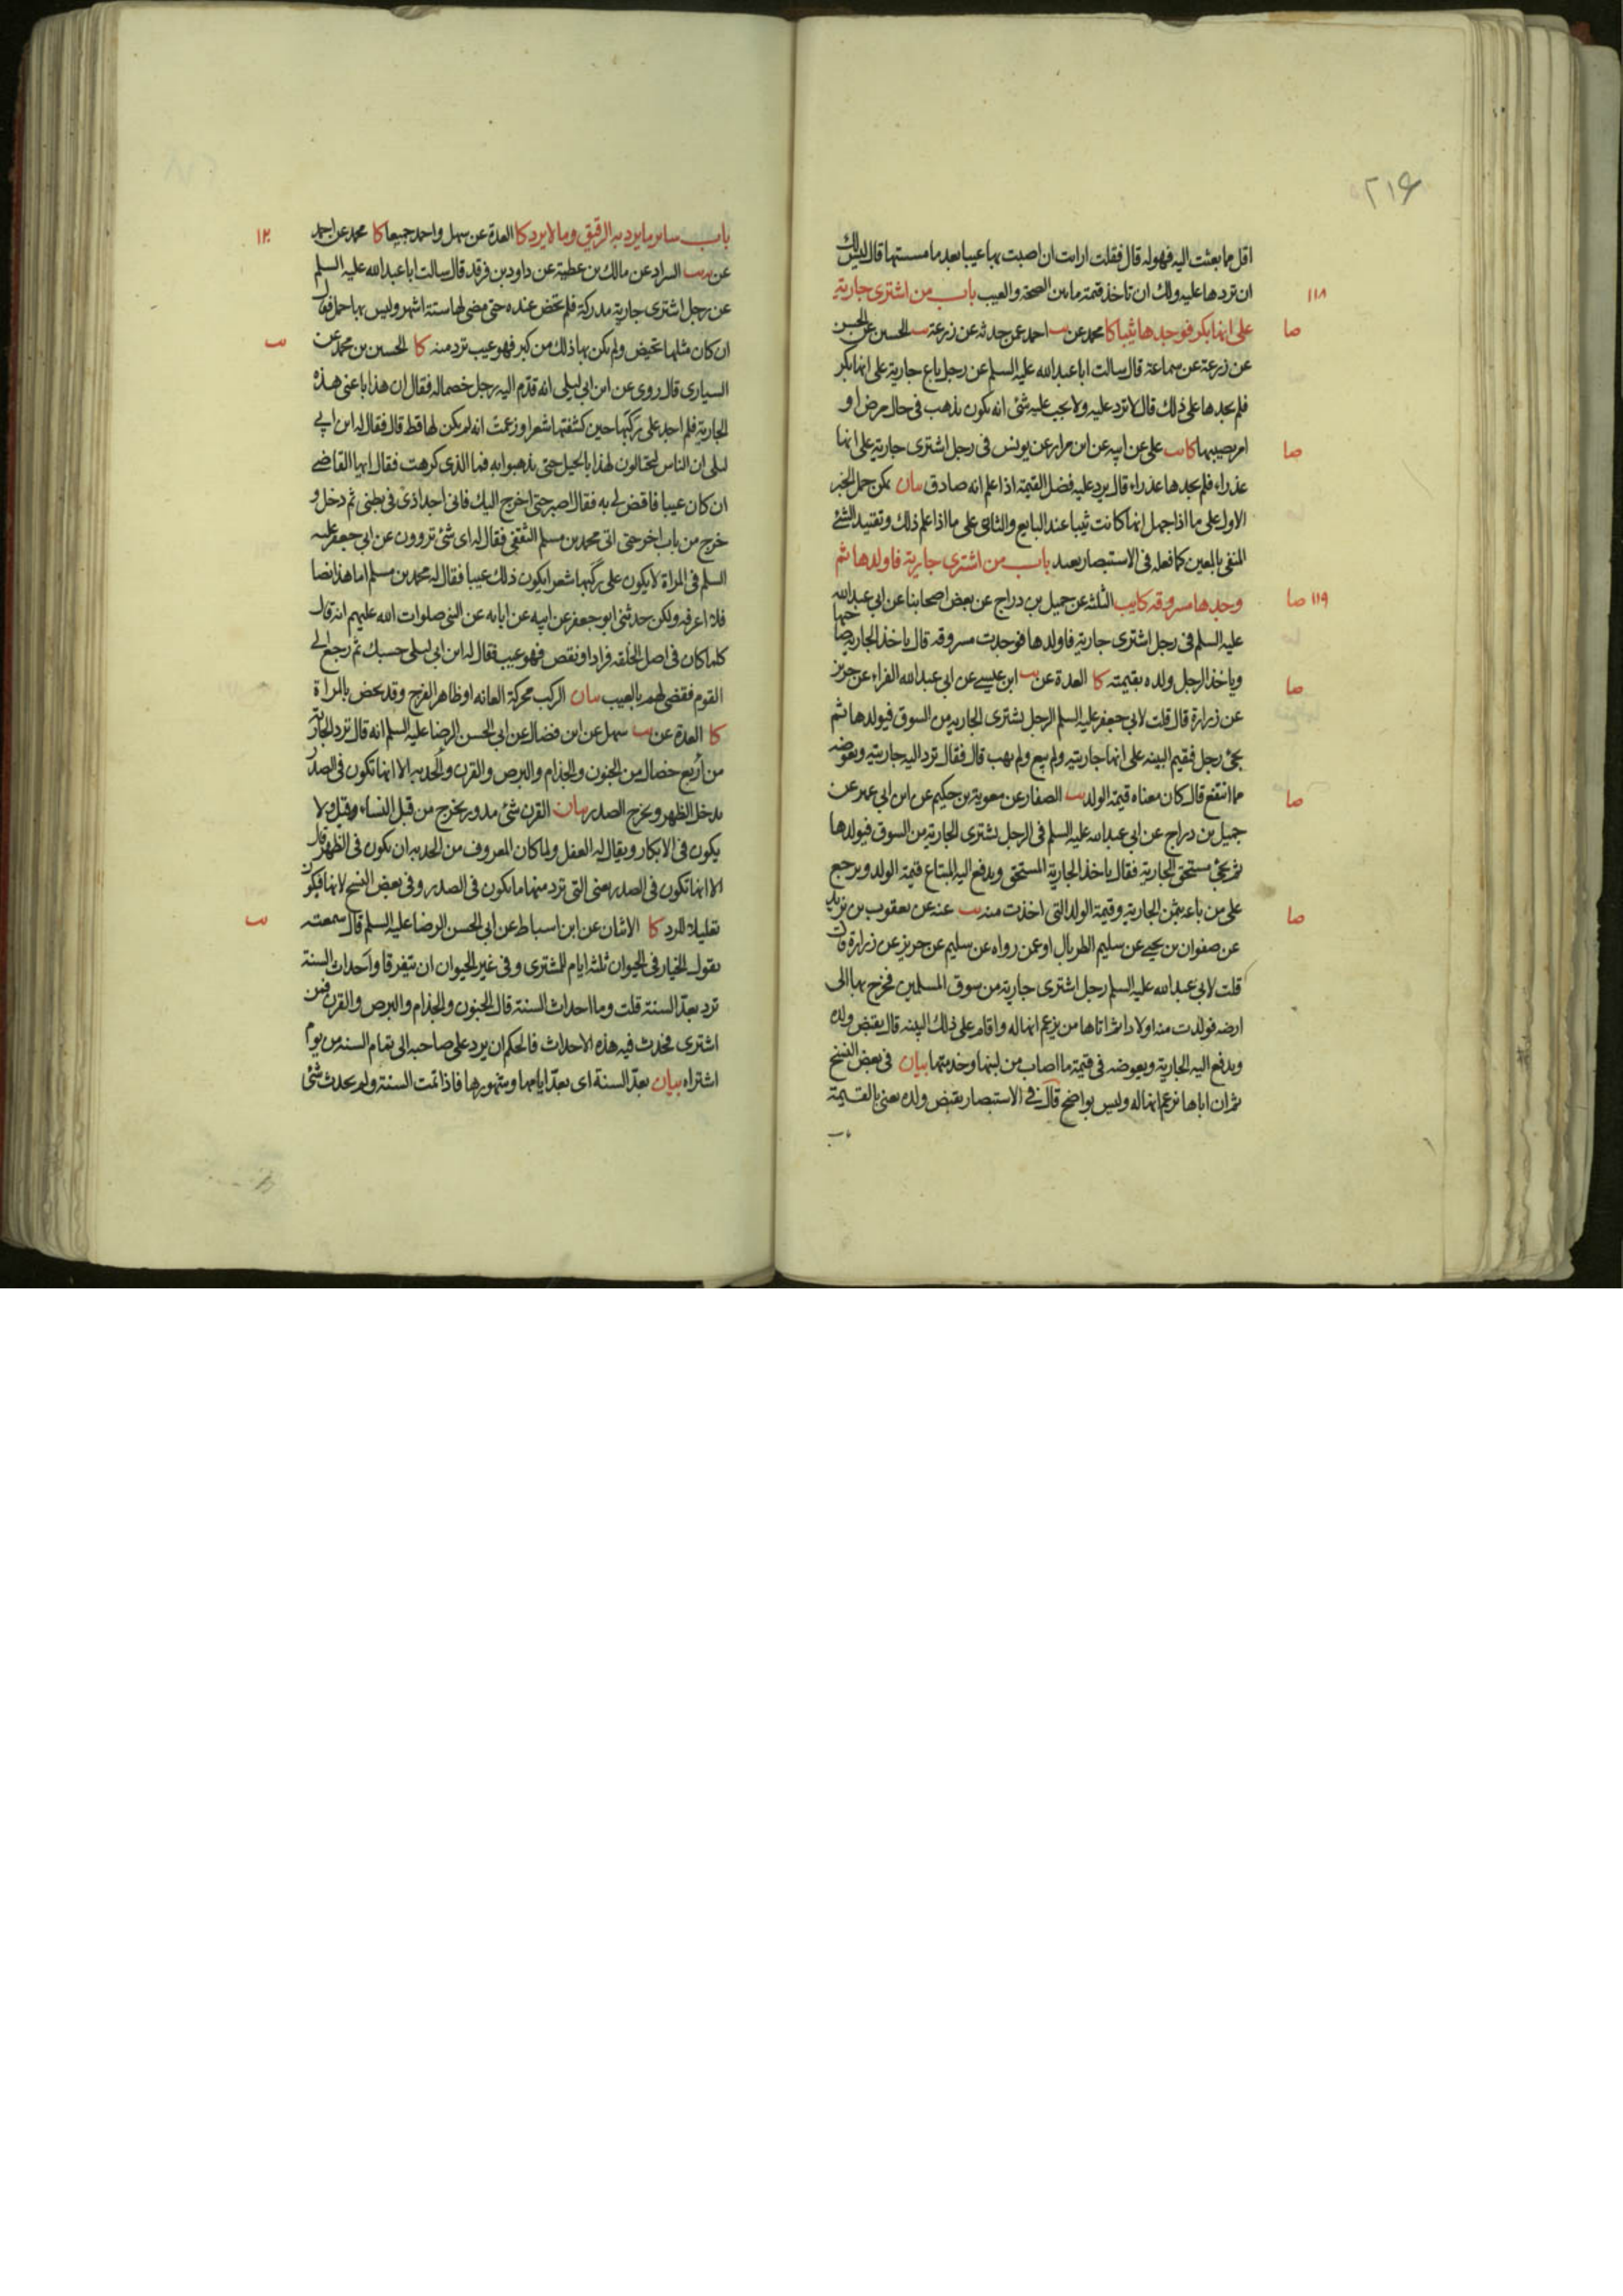 ۲۱۶
اقل مما بعثت اليه فهو له قال فقلت ارايت ان اصبت بها عيبا بعد ما مسستها قال ليس لك
ان تردها عليه ولك ان تاخذ قيمة ما بين الصحة والعيب باب من اشترى جارية
۱۱۸
على انها بكر فوجدها ثيبا كا محمد عن يب احمد عمن حدثه عن زرعة يب الحسين عن الحسن
صا
عن زرعة عن سماعة قال سالت ابا عبدالله عليه السلم عن رجل باع جارية على انها بكر
فلم يجدها على ذلك قال لا ترد عليه ولا يجب عليه شئ انه يكون يذهب فى حال مرض او
امر يصيبها كا يب على عن ابيه عن ابن مرار عن يونس فى رجل اشترى جارية على انها
صا
عذراء فلم يجدها عذراء قال يرد عليه فضل القيمة اذا علم انه صادق بيان يمكن حمل الخبر
الاول على ما اذا جهل انها كانت ثيبا عند البايع والثانى على ما اذا علم ذلك وتقييد الشئ
المنفى بالمعين كما فعله فى الاستبصار بعيد باب من اشترى جارية فاولدها ثم
وجدها مسروقه كا يب الثلثة عن جميل بن دراج عن بعض اصحابنا عن ابى عبدالله
۱۱۹ صا
عليه السلم فى رجل اشترى جارية فاولدها فوجدت مسروقه قال ياخذ الجارية صاحبها
وياخذ الرجل ولده بقيمته كا العدة عن يب ابن عيسى عن ابى عبدالله الفراء عن حريز
صا
عن زرارة قال قلت لابى جعفر عليه السلم الرجل يشترى الجارية من السوق فيولدها ثم
يجئ رجل فيقيم البينه على انها جاريته ولم يبع ولم يهب قال فقال ترد اليه جاريته ويعوضه
مما انتفع قال كان معناه قيمة الولد يب الصفار عن معوية بن حكيم عن ابن ابى عمير عن
صا
جميل بن دراج عن ابى عبدالله عليه السلم فى الرجل يشترى الجارية من السوق فيولدها
ثم يجئ مستحق الجارية فقال ياخذ الجارية المستحق ويدفع اليه المبتاع قيمة الولد ويرجع
على من باعه بثمن الجارية وقيمة الولد التى اخذت منه يب عنه عن يعقوب بن يزيد
صا
عن صفوان بن يحيى عن سليم الطربال او عمن رواه عن سليم عن حريز عن زرارة قال
قلت لابى عبدالله عليه السلم رجل اشترى جارية من سوق المسلمين فخرج بها الى
ارضه فولدت منه اولادا ثم اتاها من يزعم انها له واقام على ذلك البينه قال يقبض ولده
ويدفع اليه الجارية ويعوضه فى قيمة ما اصاب من لبنها وخدمتها بيان فى بعض النسخ
ثم ان اباها يزعم انها له وليس بواضح قال فى الاستبصار يقبض ولده يعنى بالقيمة
باب
باب ساير ما يرد به الرقيق وما لا يرد كا العدة عن سهل واحمد جميعا كا محمد عن احمد
۱۲۰
عن يب السراد عن مالك بن عطية عن داود بن فرقد قال سالت ابا عبدالله عليه السلم
عن رجل اشترى جارية مدركة فلم تحض عنده حتى مضى لها ستة اشهر وليس بها حمل فقال
ان كان مثلها تحيض ولم يكن بها ذلك من كبر فهو عيب ترد منه كا الحسين بن محمد عن
يب
السيارى قال روى عن ابن ابى ليلى انه قدم اليه رجل خصما له فقال ان هذا باعنى هذه
الجارية فلم اجد على ركبها حين كشفتها شعرا وزعمت انه لم يكن لها قط قال فقال له ابن ابى
ليلى ان الناس ليحتالون لهذا بالحيل حتى يذهبوا به فما الذى كرهت فقال ايها القاضى
ان كان عيبا فاقض لى به فقال اصبر حتى اخرج اليك فانى اجد اذى فى بطنى ثم دخل و
خرج من باب اخر حتى اتى محمد بن مسلم الثقفى فقال له اى شئ تروون عن ابى جعفر عليه
السلم فى المراة لا يكون على ركبها شعر ايكون ذلك عيبا فقال له محمد بن مسلم اما هذا نصا
فلا اعرفه ولكن حدثنى ابو جعفر عن ابيه عن ابائه عن النبى صلوات الله عليهم انه قال
كلما كان فى اصل الخلقه فزاد او نقص فهو عيب فقال له ابن ابى ليلى حسبك ثم رجع الى
القوم فقضى لهم بالعيب بيان الركب محركة العانه او ظاهر الفرج وقد يخص بالمراة
كا العدة عن يب سهل عن ابن فضال عن ابى الحسن الرضا عليه السلم انه قال ترد الجارية
من اربع خصال من الجنون والجذام والبرص والقرن والحدبه الا انها تكون فى الصدر
يدخل الظهر ويخرج الصدر بيان القرن شئ مدور يخرج من قبل النساء وقيل ولا
يكون فى الابكار ويقال له العفل ولما كان المعروف من الحدبه ان يكون فى الظهر قال
الا انها تكون فى الصدر يعنى التى ترد منها ما يكون فى الصدر وفى بعض النسخ لانها فيكون
تعليلا للرد كا الاثنان عن ابن اسباط عن ابى الحسن الرضا عليه السلم قال سمعته
يب
يقول الخيار فى الحيوان ثلثة ايام للمشترى وفى غير الحيوان ان يتفرقا واحداث السنة
ترد بعد السنة قلت وما احداث السنة قال الجنون والجذام والبرص والقرن فمن
اشترى فحدث فيه هذه الاحداث فالحكم ان يرد على صاحبه الى تمام السنه من يوم
اشتراه بيان بعد السنة اى بعد ايامها وشهورها فاذا تمت السنة ولم يحدث شئ